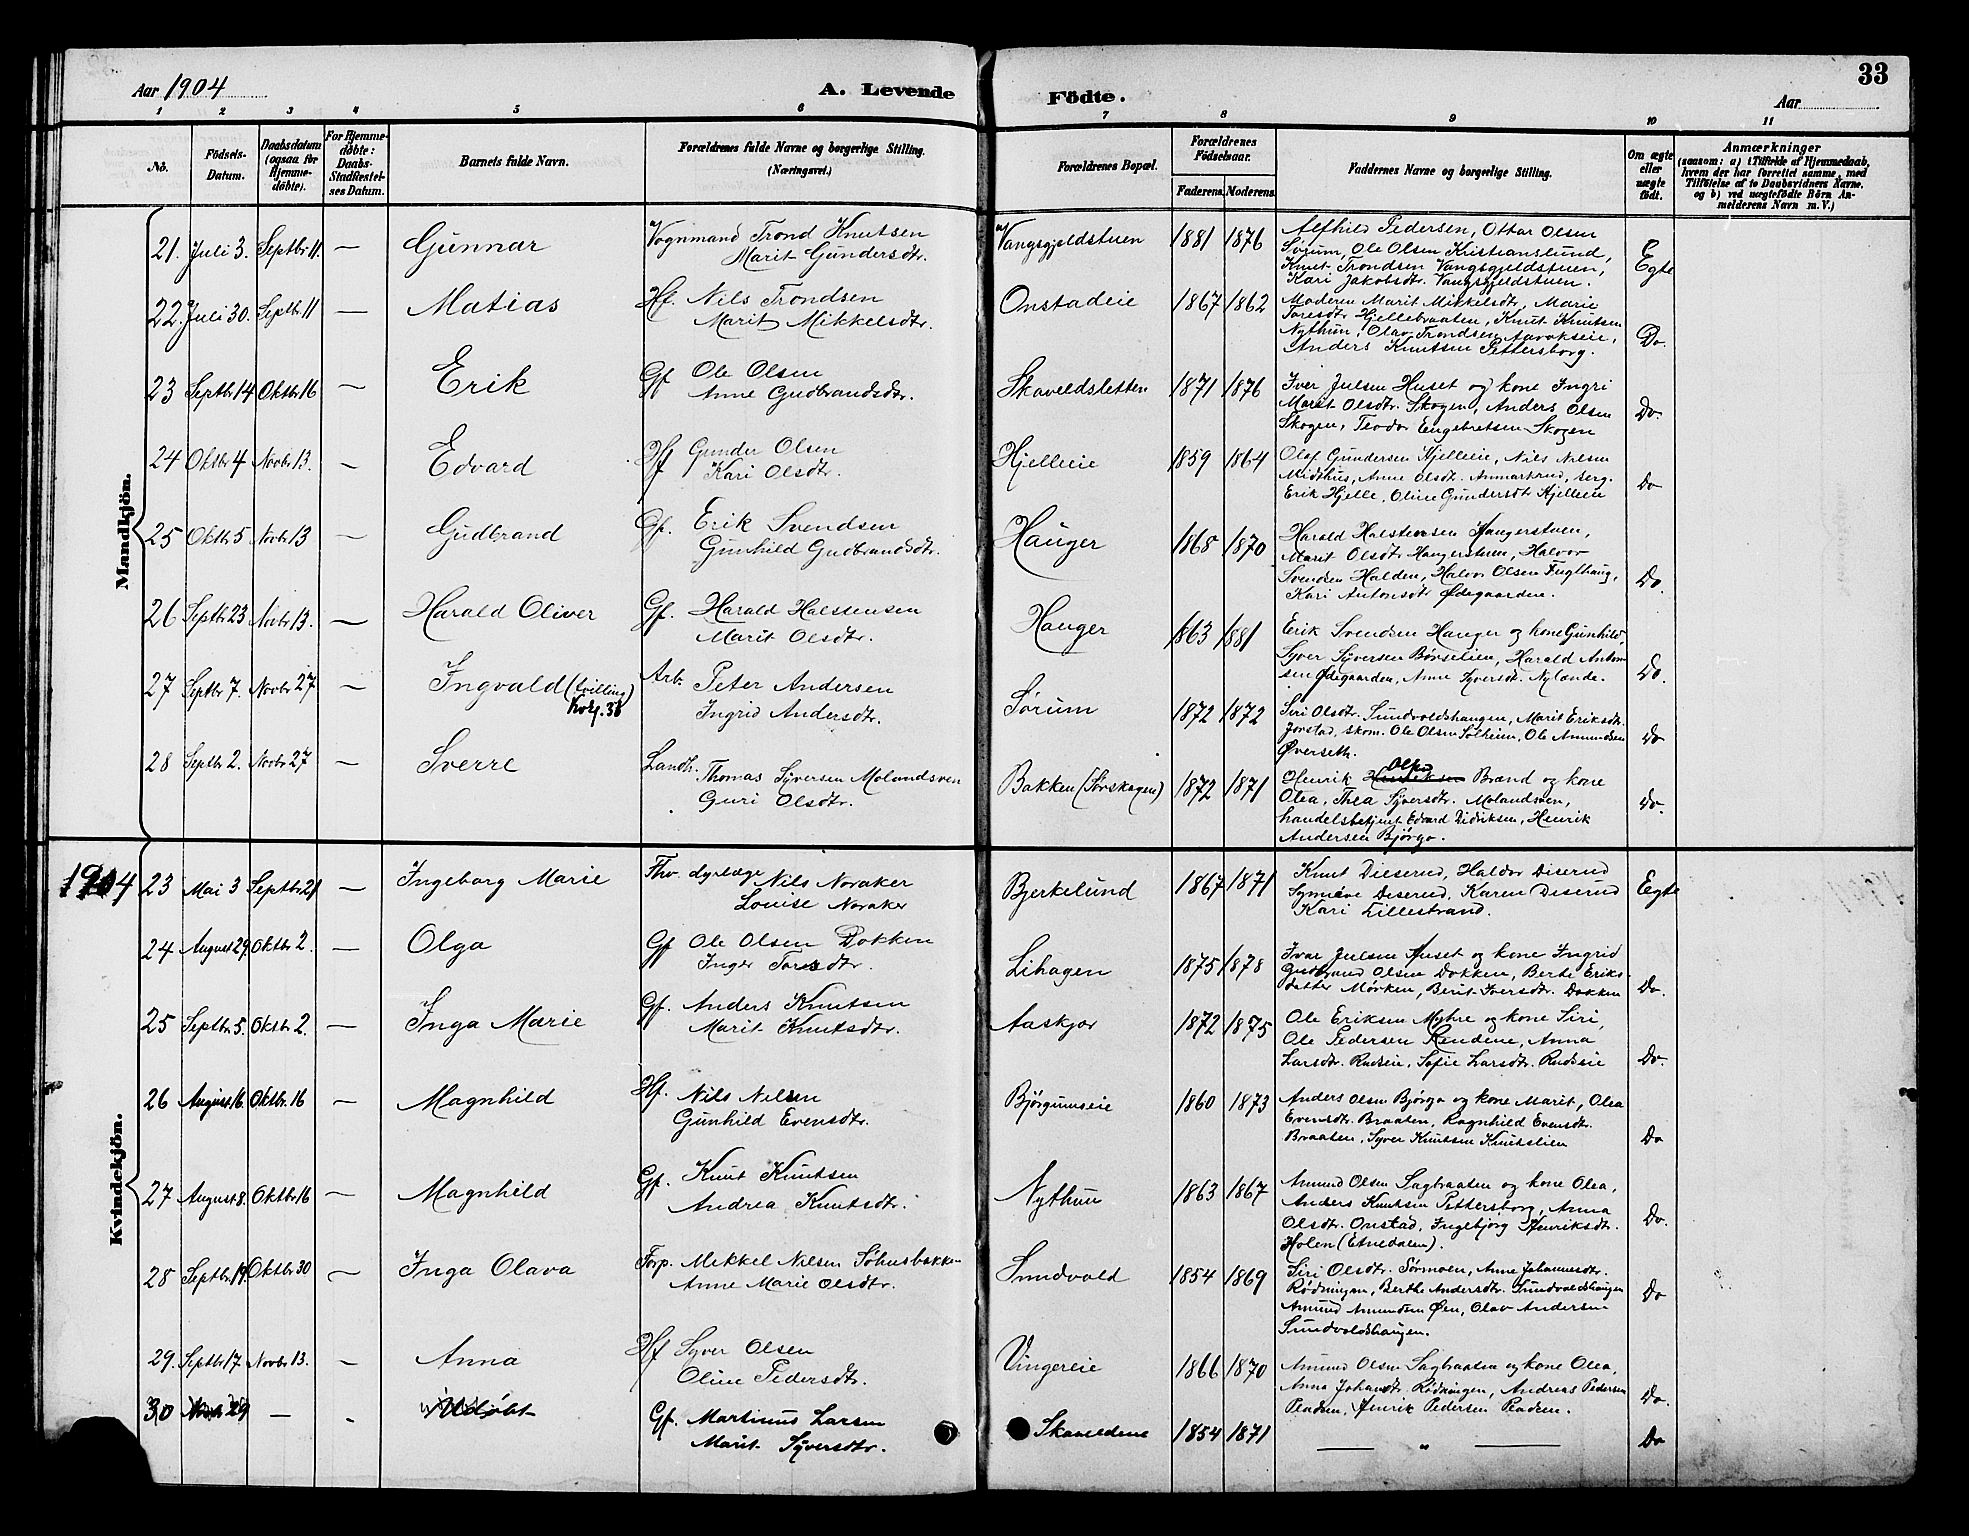 33
Aar 1904
A. Levende
Födte.
Aar
1 2 3 4 5 6 7 8 9 10 11
No.
Födsels-Datum.
Daabsdatum (ogsaa for Hjemme-döbte).
For Hjemme-döbte: Daabs-Stadfæstel-ses Datum.
Barnets fulde Navn.
Forældrenes fulde Navne og borgerlige Stilling. (Næringsvei.)
Forældrenes Bopæl.
Forældrenes Födselsaar.
Faderens. Moderens.
Faddernes Navne og borgerlige Stilling.
Om ægte eller uægte födt.
Anmærkninger
(saasom: a) i Tilfælde af Hjemmedaab, hvem der har forrettet samme, med Tilföielse af to Daabsvidners Navne, og b) ved uægtefödte Börn An-melderens Navn m. V.)
Mandkjön.
21. Juli 3. Septbr 11. — Gunnar
Vognmand Trond Knutsen
Marit Gundersdtr.
Vangsgjeldstuen 1881 1876
Alfhild Pedersen, Ottar Olsen
Sørum, Ole Olsen Kristianslund,
Knut Trondsen Vangsgjeldstuen,
Kari Jakobsdtr. Vangsgjeldstuen.
Egte
22. Juli 30. Septbr. 11 — Matias
Hf. Nils Trondsen
Marit Mikkelsdtr.
Onstadeie 1867 1862
Moderen Marit Mikkelsdtr, Marie
Toresdtr Hjellebraaten, Knut Knutsen
Nythun, Olav Trondsen
Anders Knutsen Pettersborg.
Do.
23 Septbr 14 Oktbr 16 — Erik
Gf Ole Olsen
Anne Gudbrandsdtr.
Skaveldsletten 1871 1876
Iver Julsen Huset og kone Ingri
Marit Olsdtr. Skogen, Anders Olsen
Skogen, Teodor Engebretsen Skogen
Do.
24 Oktbr 4 Novbr 13. — Edvard
Hf Gunder Olsen
Kari Olsdtr.
Hjelleie 1859 1864
Olaf Gundersen Hjelleie, Nils Nilsen
Midthus, Anne Olsdt. Anmartrud, serg.
Erik Hjelle, Oline Gundersdt Hjelleie
Do
25 Oktbr 5 Novbr 13 — Gudbrand
Gf. Erik Svendsen
Gunhild Gudbrandsdtr.
Hauger 1868 1870
Harald Halstensen Haugerstuen,
Marit Olsdtr Haugerstuen, Halvor
Svendsen Halden, Halvor Olsen Fuglhaug,
Kari Antonsdtr Ødegaarden.
Do.
26 Septbr 23 Novbr 13. — Harald Oliver
Gf. Harald Halstensen
Marit Olsdtr.
Hauger 1863 1881
Erik Svendsen Hauger og kone Gunhild,
Syver Syversen Børselien, Harald Anton-
sen Ødegaarden, Anne Syversdt. Nylænde.
Do.
27 Septbr 7. Novbr 27 — Ingvald (tvilling)
Arb. Peter Andersen
Ingrid Andersdtr.
Sørum 1872 1872
Siri Olsdtr. Sundvoldshaugen, Marit Eriksdtr.
Jorstad, skom. Ole Olsen Solheim, Ole Amundsen
Øverseth.
Do
28 Septbr 2. Novbr 27 — Sverre
Landh. Thomas Syversen Molandsven
Guri Olsdtr.
Bakken (Sørskogen) 1872 1871
Henrik Olsen Brænd og kone
Olea, Thea Syversdtr. Molandsven,
handelsbetjent Edvard Didriksen, Henrik
Andersen Bjørgo.
Do.
1904
Kvindekjön.
23 Mai 3 Septbr 21 — Ingeborg Marie
Fhv. dyrlæge Nils Noraker
Louise Noraker
Bjerkelund 1867 1871
Knut Dieserud, Haldor Diserud
Synneve Diserud, Karen Diserud
Kari Lillestrand.
Egte
24 August 29. Oktbr 2. — Olga
Gf Ole Olsen Dokken
Inger Toresdtr.
Lihagen 1875 1878
Ivar Julsen Huset og kone Ingrid
Gudbrand Olsen Dokken, Berte Eriks-
datter Mørken, Berit Iversdtr. Dokken
Do.
25 Septbr 5. Oktbr 2. — Inga Marie
Gf. Anders Knutsen
Marit Knutsdtr.
Aaskjør 1872 1875
Ole Eriksen Myhre og kone Siri,
Ole Pedersen Rendene, Anna
Larsdtr. Rudseie, Sofie Larsdtr. Rudseie
Do.
26 August 16. Oktbr. 16 — Magnhild
Hf. Nils Nilsen
Gunhild Evensdtr.
Bjørgumseie 1860 1873
Anders Olsen Bjørgo og kone Marit, Olea
Evensdtr. Braaten, Ragnhild Evensdtr.
Braaten, Syver Knutsen Knutslien
Do
27 August 8. Oktbr 16 — Magnhild
Gf. Knut Knutsen
Andrea Knutsdtr.
Nythun 1863 1867
Amund Olsen Sagbraaten og kone Olea,
Anders Knutsen Pettersborg, Anna
Olsdtr. Onstad, Ingebjørg Henriksdtr.
Holen (Etnedalen).
Do.
28 Septbr 19 Oktbr 30 — Inga Olava
Forp. Mekkel Nilsen Søhusbakken
Anne Marie Olsdtr.
Sundvold 1854 1869
Siri Olsdtr. Sørmoen, Anne Johannesdtr.
Rødningen, Berthe Andersdtr. Sundvoldshaugen
Amund Amundsen Øen, Olav Andersen
Sundvoldshaugen.
Do
29. Septbr 17. Novbr 13. — Anna
Hf Syver Olsen
Oline Pedersdtr.
Vingereie 1866 1870
Amund Olsen Sagbraaten og kone Olea,
Anna Johansdtr. Rødningen, Andreas Pedersen
Henrik Pedersen
Do.
30 29 — Udøbt
Gf. Martinus Larsen
Marit Syversdtr.
Skaveldene 1854 1871
— " —
Do